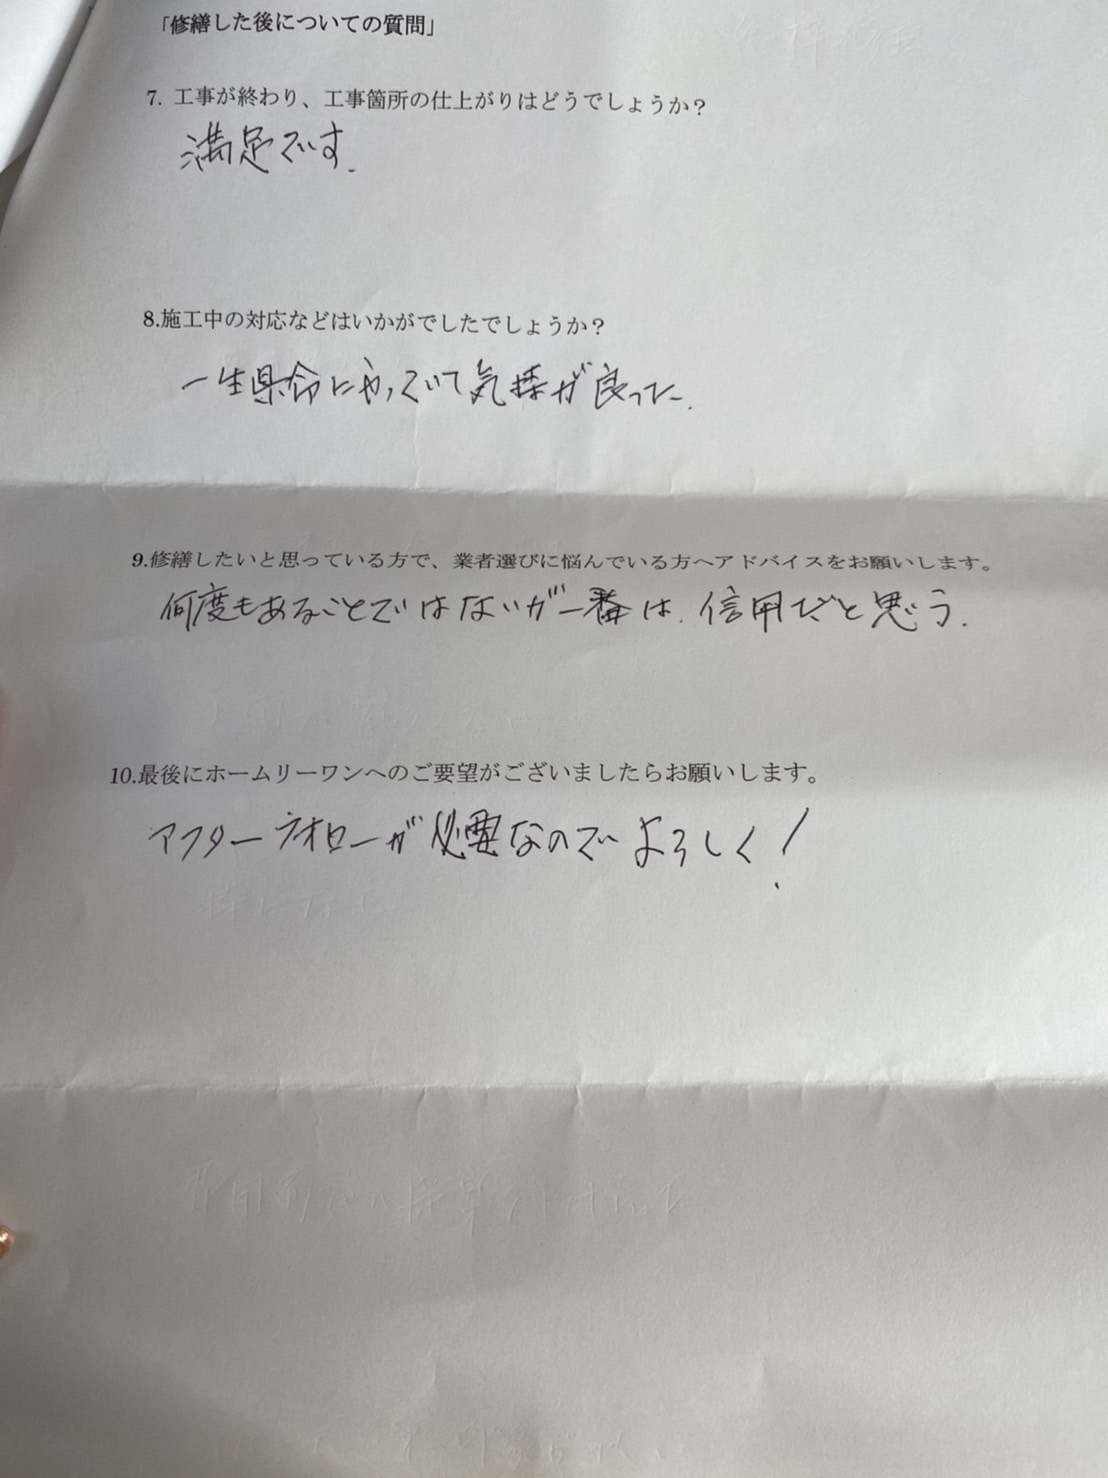 「修繕した後についての質問」
7. 工事が終わり、工事箇所の仕上がりはどうでしょうか？
満足です.
8.施工中の対応などはいかがでしたでしょうか？
一生県命にやっていて気持が良った.
9.修繕したいと思っている方で、業者選びに悩んでいる方へアドバイスをお願いします。
何度もあることではないが一番は.信用だと思う.
10.最後にホームリーワンへのご要望がございましたらお願いします。
アフターフォローが必要なのでよろしく!